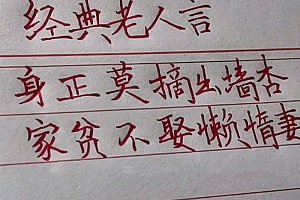 经典老人言
身正莫摘出墙杏
家贫不娶懒惰妻